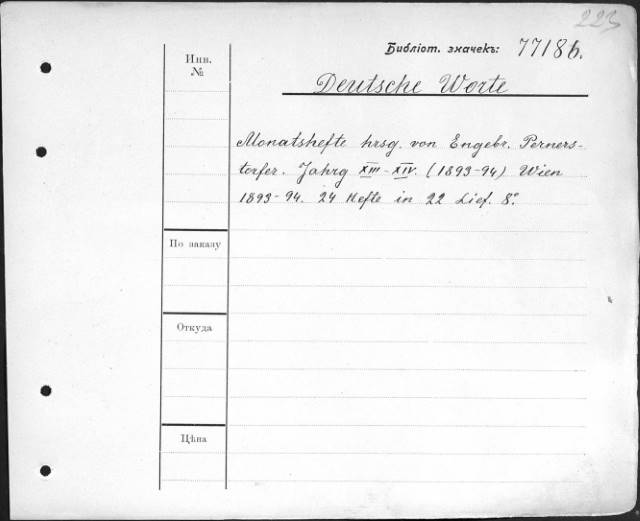 223
Библіот. значекъ: 7718б.
Инв.
№
Deutsche Worte
Monatshefte hrsg. von Engebr. Perners-
torfer. Jahrg XIII-XIV. (1893-94) Wien
1893-94. 24 Hefte in 22 Lief. 8°
По заказу
Откуда
Цѣна